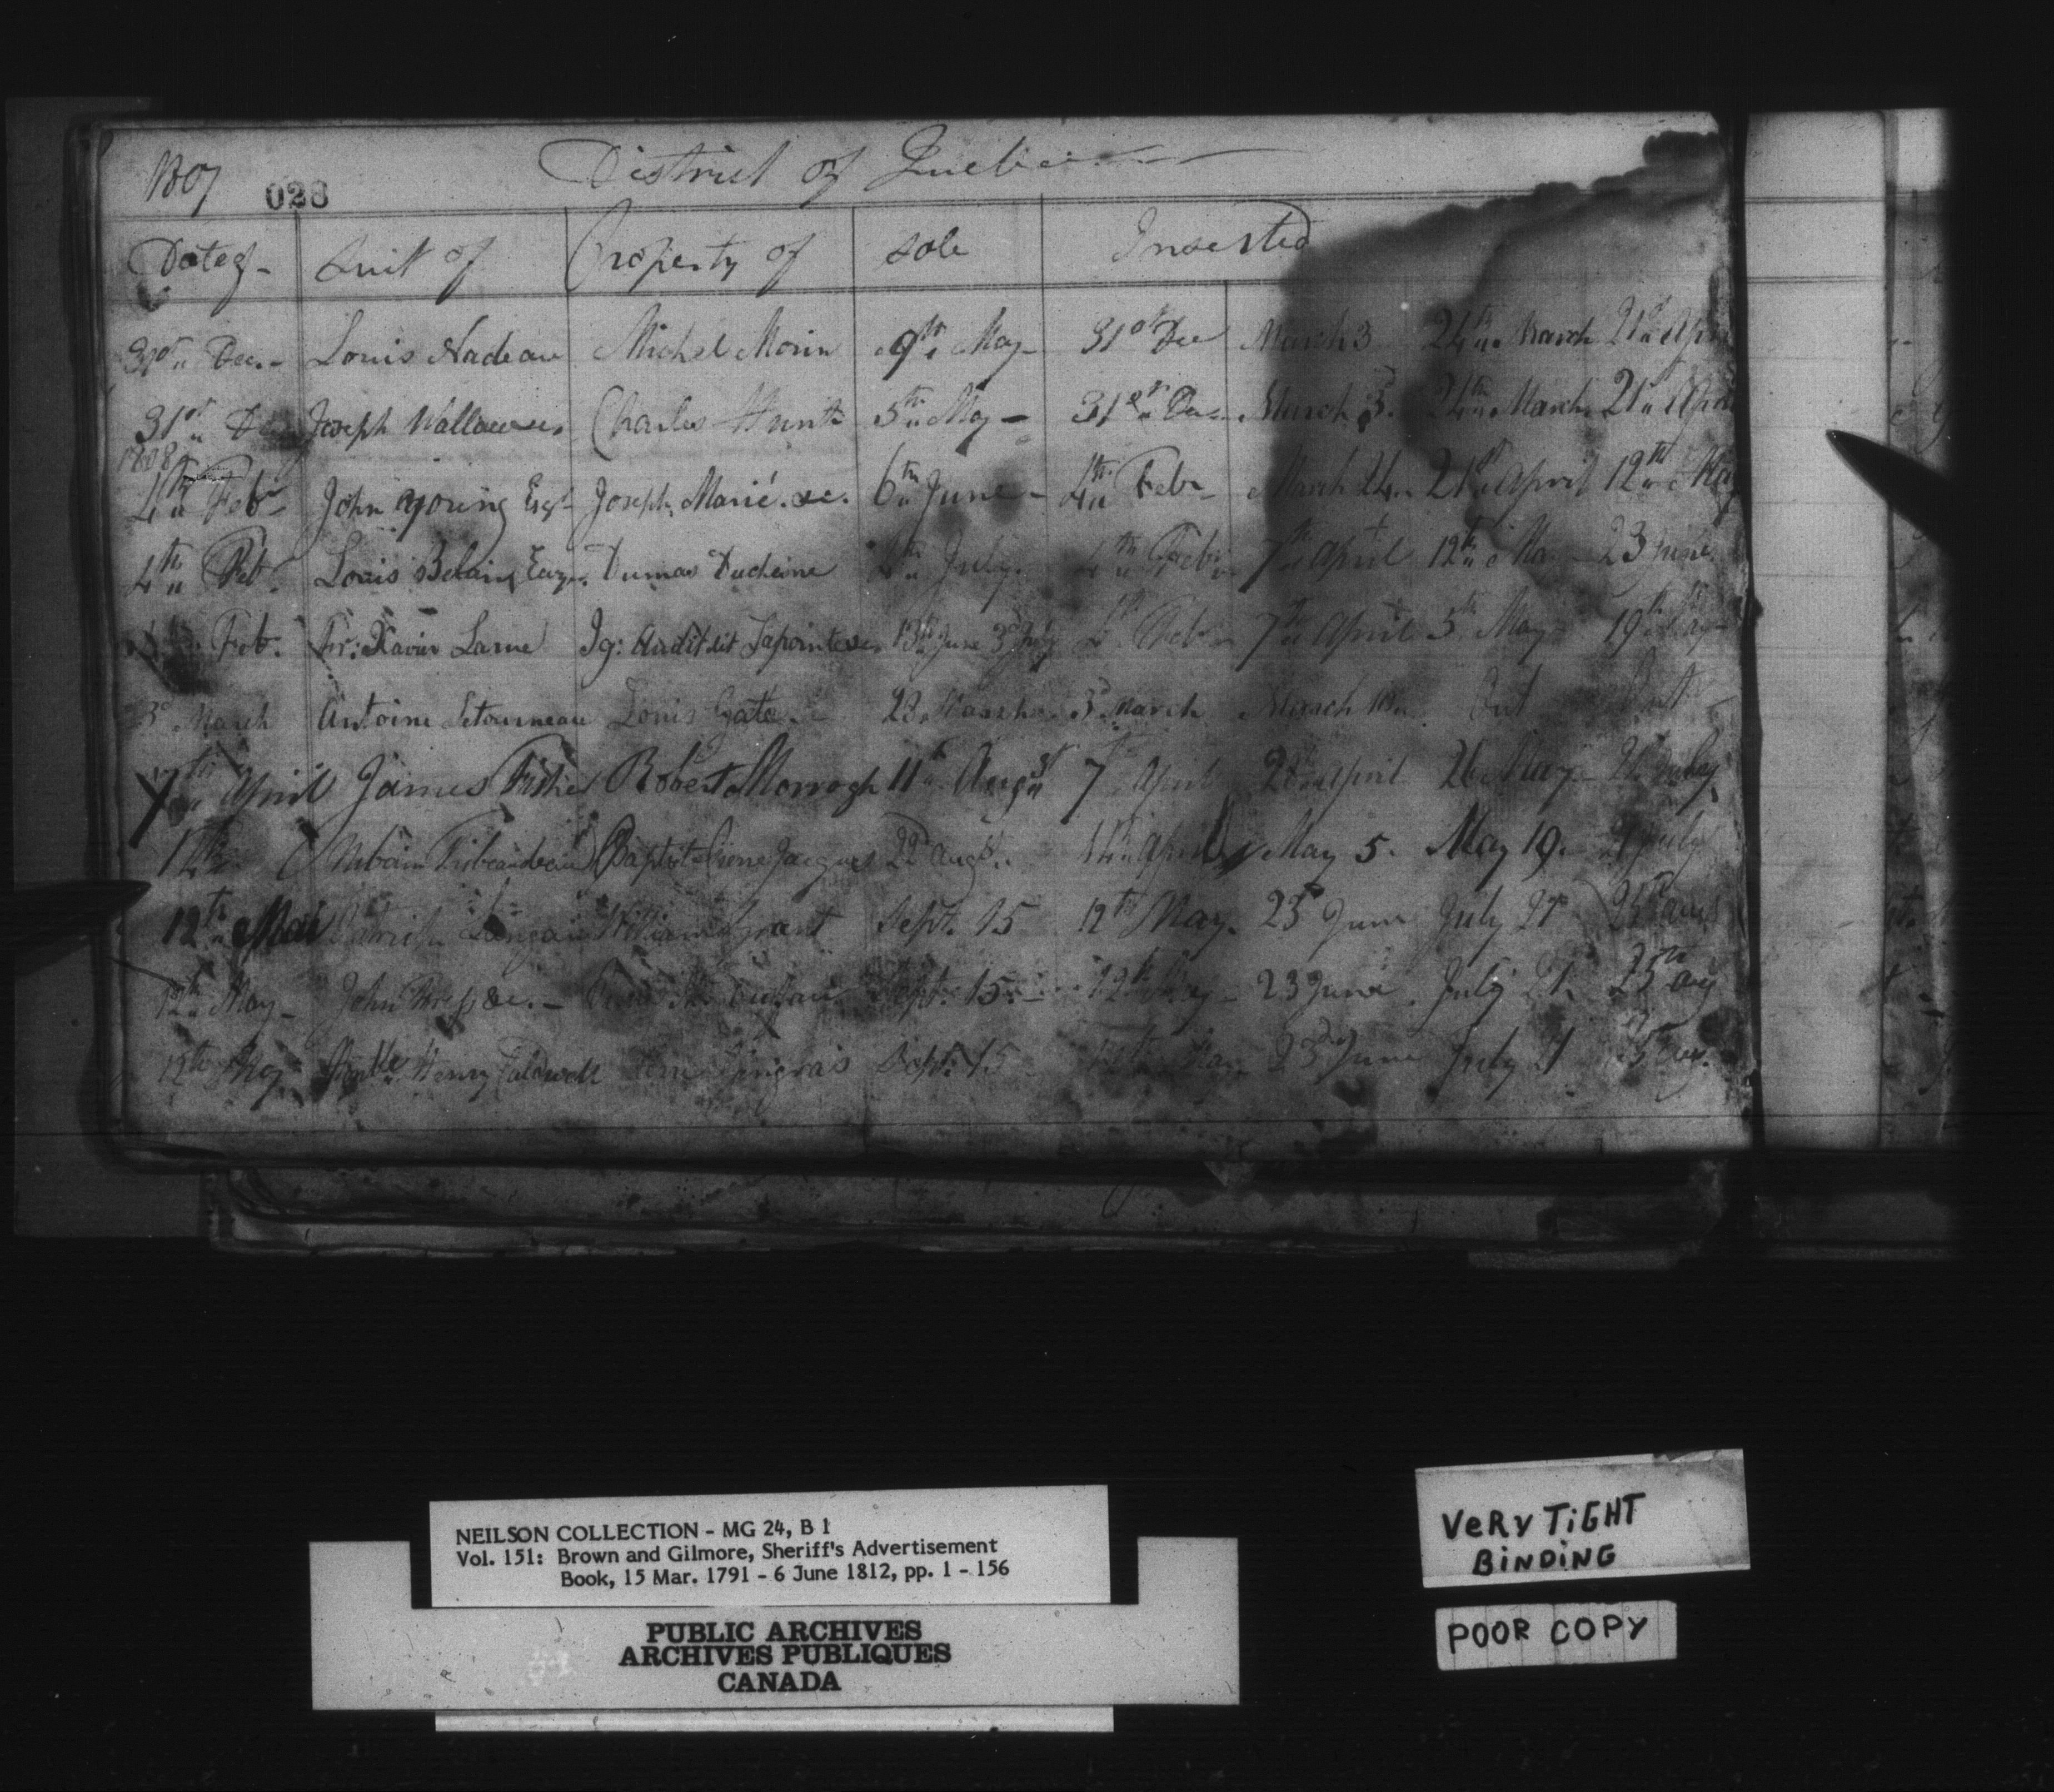 1807 028 District of Quebec
Dates Suit of Property of Sale Inserted
31st Dec. Louis Nadeau Michel Morin 9th May 31st Dec March 3 24th March 21st Apr
31st Charles Hunt 5th May 31st Dec March 3. 24th March 21st Apr
1808
4th Feb John Young Esqr Joseph Marié &c. 6th June 4th Feb March 24 21st April 12th Ma
4th Feb. Louis Dumas Ducheine July 4th Feb 7th April 12th May 23 June
Feb. Fr: Xavier Larue Ig: Audit dit Lapointe 13th June 3d July Feb 7th April 5th May 19th May
3d March Antoine Letourneau Louis 28 March 3d March March 10 Out Out
7th April James Fisher Robert Morrogh 11th Augst 7th April 28th April 26 May 21st July
Baptiste Jacques 22d Augt. April May 5. May 19. July
12th Mai William Grant Sept. 15 12th May. 23d June July 21st 25th Aug
12th May John &c. Sept. 15 12th May 23 June July 21 25th Aug
12th May Honble Henry Caldwell Gingras Sept. 15 May 23d June July 21 25
NEILSON COLLECTION - MG 24, B 1
Vol. 151: Brown and Gilmore, Sheriff's Advertisement
Book, 15 Mar. 1791 - 6 June 1812, pp. 1 - 156
PUBLIC ARCHIVES
ARCHIVES PUBLIQUES
CANADA
VeRy TiGHT
BiNDiNG
POOR COPY